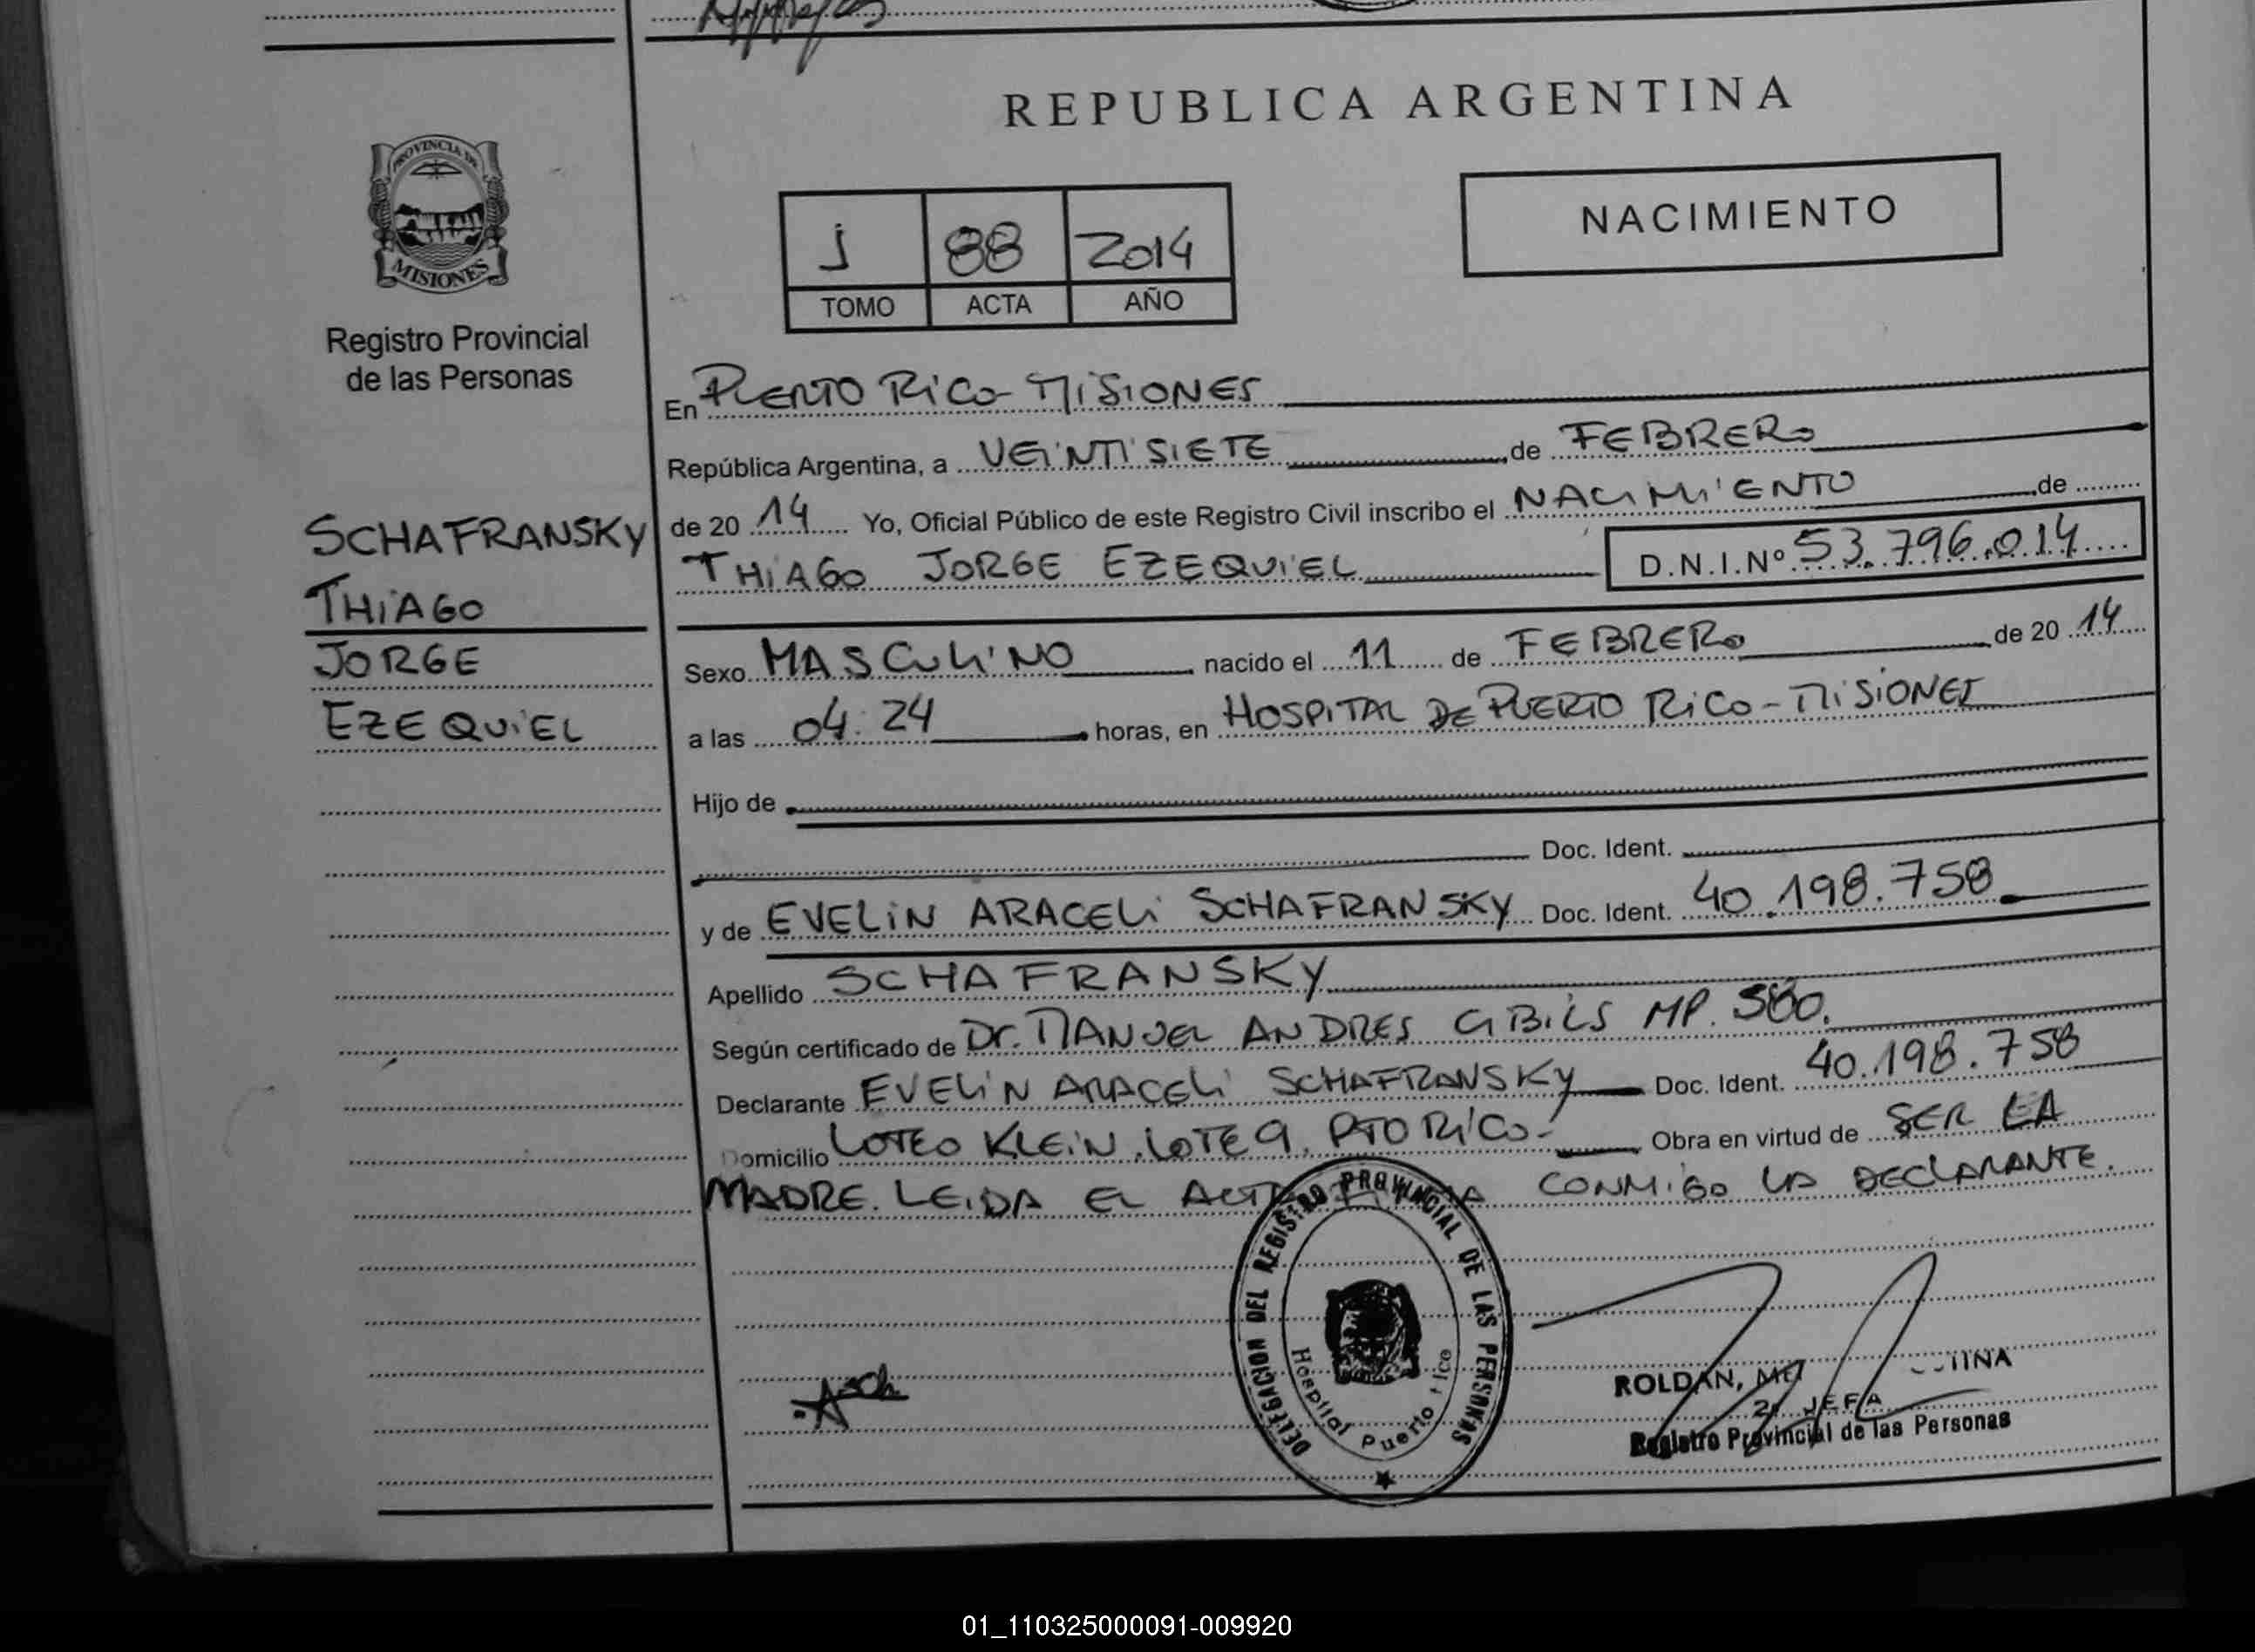 REPUBLICA ARGENTINA
PROVINCIA DE
MISIONES
Registro Provincial
de las Personas
J 88 2014
TOMO ACTA AÑO
NACIMIENTO
SCHAFRANSKY
THIAGO
JORGE
EZEQUIEL
En PUERTO RICO - MISIONES
República Argentina, a VEINTISIETE de FEBRERO
de 20 14 Yo, Oficial Público de este Registro Civil inscribo el NACIMIENTO de
THIAGO JORGE EZEQUIEL D.N.I.Nº 53.796.014
Sexo MASCULINO nacido el 11 de FEBRERO de 20 14
a las 04:24 horas, en HOSPITAL DE PUERTO RICO - MISIONES
Hijo de
Doc. Ident.
y de EVELIN ARACELI SCHAFRANSKY Doc. Ident. 40.198.758
Apellido SCHAFRANSKY
Según certificado de Dr. MANUEL ANDRES GIBILS MP. 580.
Declarante EVELIN ARACELI SCHAFRANSKY Doc. Ident. 40.198.758
Domicilio LOTEO KLEIN. LOTE 9. PTO RICO- Obra en virtud de SER LA
MADRE. LEIDA EL ACTA FIRMA CONMIGO LA DECLARANTE.
DELEGACION DEL REGISTRO PROVINCIAL DE LAS PERSONAS
Hospital Puerto Rico
ROLDAN,
JEFA
Registro Provincial de las Personas
01_110325000091-009920